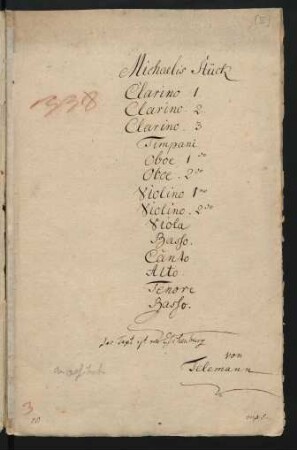 (2)
Michaelis Stück
338
Clarino 1
Clarino. 2
Clarino. 3
Timpani.
Oboe 1mo
Oboe. 2do
Violino 1mo
Violino. 2do
Viola
Basso.
Canto
Alto.
Tenore
Basso.
Der Text ist von
von
Telemann
3